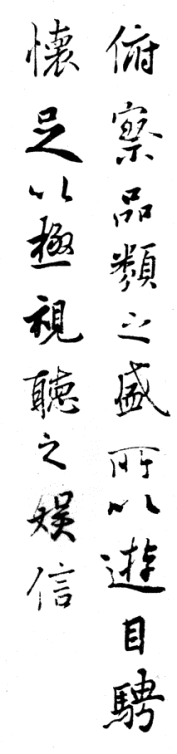 俯察品類之盛所以遊目騁
懷足以極視聽之娱信